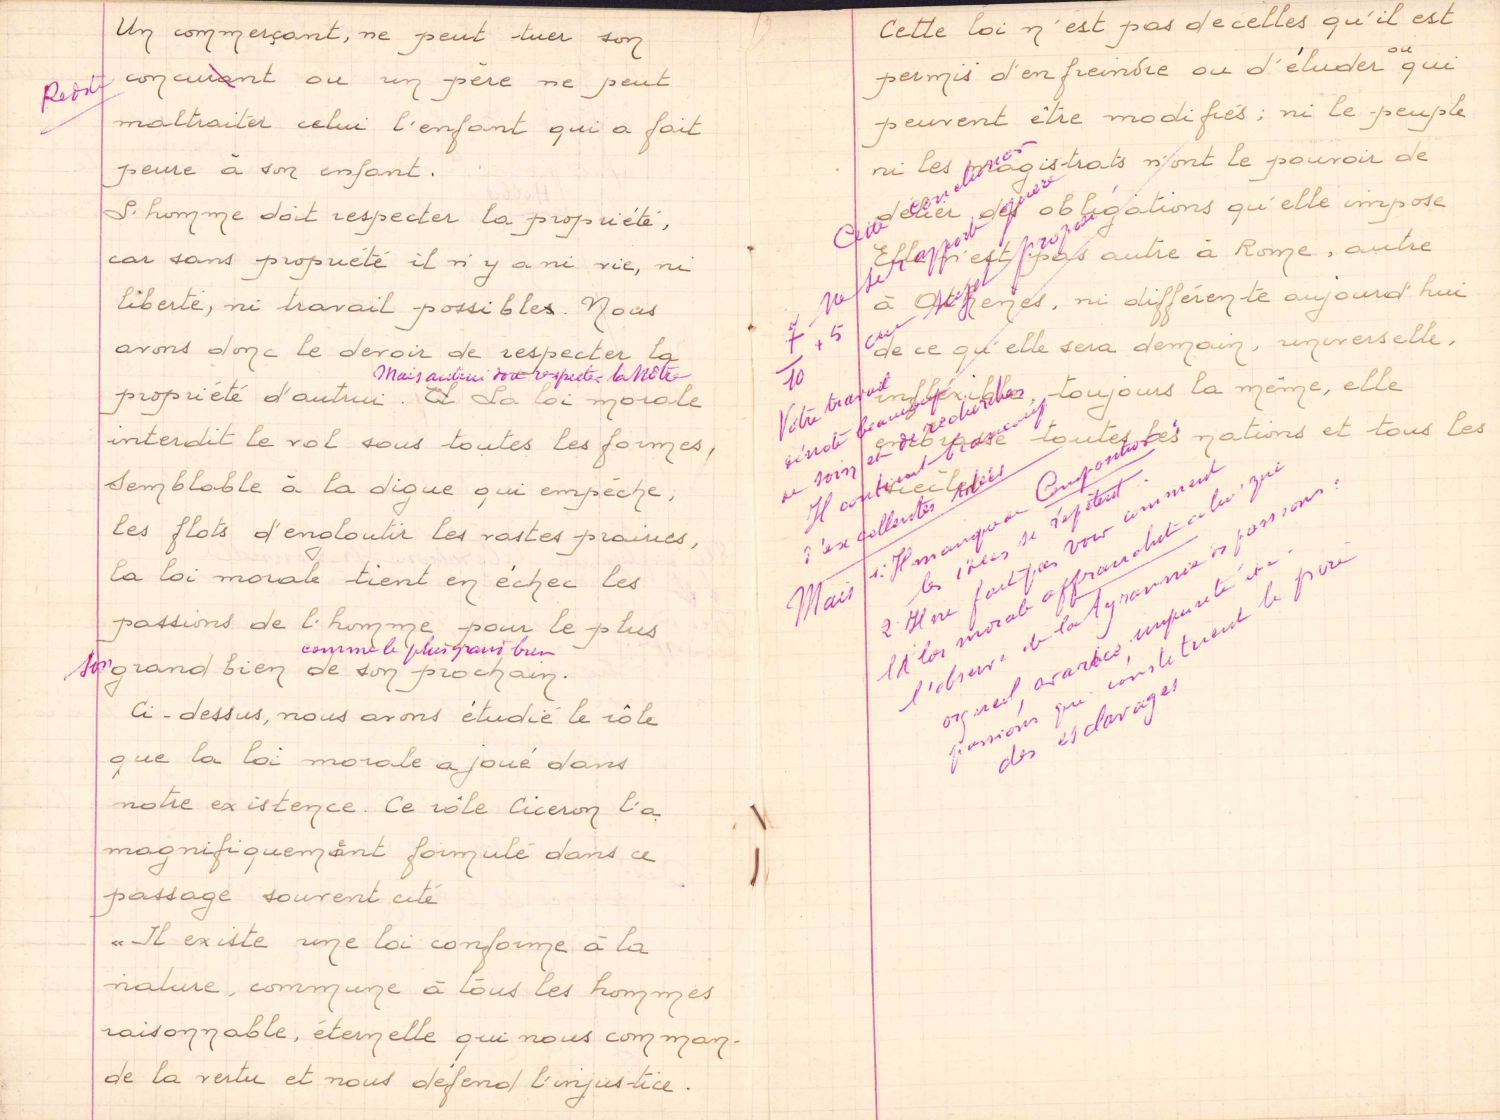 Un commerçant, ne peut tuer son
concurant ou un père ne peut
maltraiter celui l'enfant qui a fait
peure à son enfant.
L'homme doit respecter la propriété,
car sans propriété il n'y a ni vie, ni
liberté, ni travail possibles. Nous
avons donc le devoir de respecter la
Mais autrui doit respecter la Nôtre
propriété d'autrui. La loi morale
interdit le vol sous toutes les formes,
Semblable à la digue qui empêche,
les flots d'engloutir les vastes prairies,
la loi morale tient en échec les
passions de l'homme pour le plus
comme le plus grand bien
Son
grand bien de son prochain.
Ci-dessus, nous avons étudié le rôle
que la loi morale a joué dans
notre existence. Ce rôle Ciceron l'a
magnifiquement formulé dans ce
passage souvent cité
"Il existe une loi conforme à la
nature, commune à tous les hommes
raisonnable, éternelle qui nous comman-
de la vertu et nous défend l'injustice.
Cette loi n'est pas de celles qu'il est
permis d'enfreindre ou d'éluder ou qui
peuvent être modifiés; ni le peuple
ni les magistrats n'ont le pouvoir de
délier des obligations qu'elle impose
Elle n'est pas autre à Rome, autre
à Athènes, ni différente aujourd'hui
de ce qu'elle sera demain, universelle,
inflexible, toujours la même, elle
embrasse toutes les nations et tous les
siècles
Cette conclusion
ne se rapporte guère
au sujet proposé
7 + 5
10
Votre travail
dénote beaucoup
de soin et de recherches
Il contient beaucoup
d'excellentes idées
Mais 1: Il manque de Composition:
les idées se répètent.
2: Il ne fait pas voir comment
la loi morale affranchit celui qui
l'observe de la tyrannie des passions:
orgueil, avarice, impureté etc
passions qui constituent le pire
des esclavages